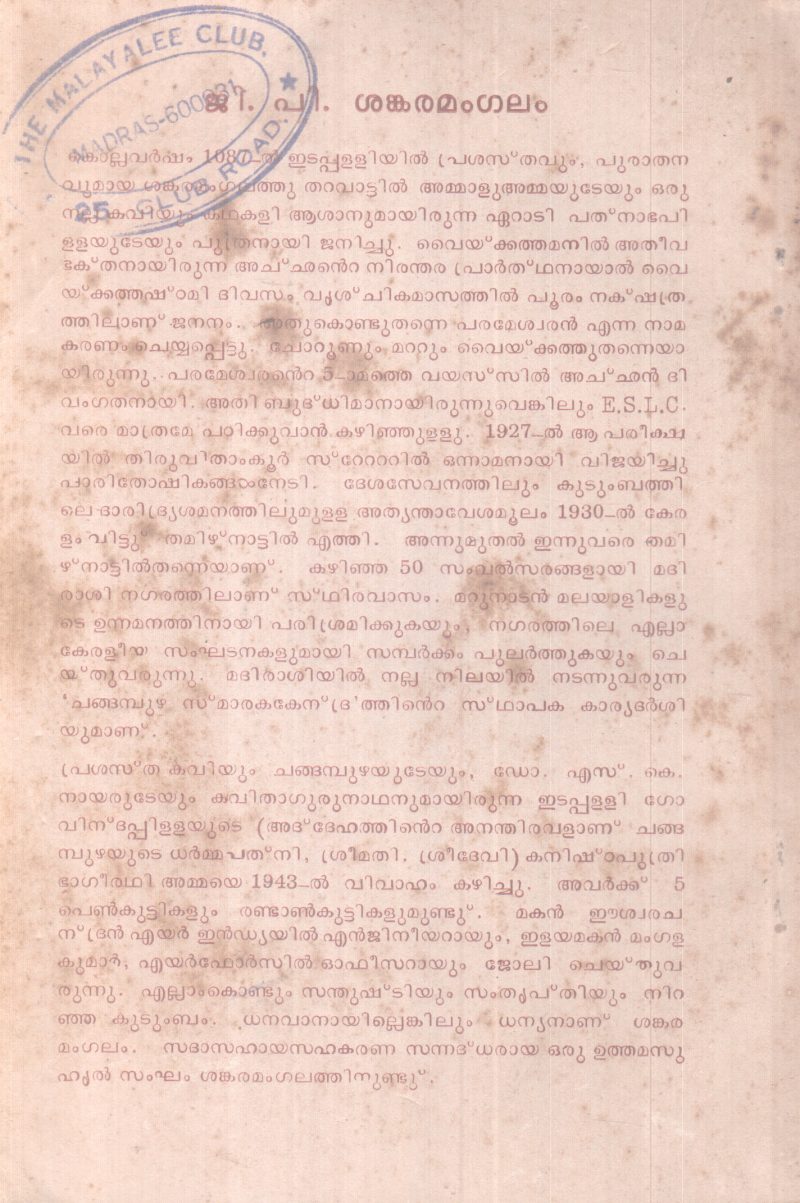 THE MALAYALEE CLUB.
MADRAS-600031
25 CLUB ROAD. ★
ജി. പി. ശങ്കരമംഗലം
കൊല്ലവർഷം 1087-ൽ ഇടപ്പളളിയിൽ പ്രശസ്തവും, പുരാതന
വുമായ ശങ്കരമംഗലത്തു തറവാട്ടിൽ അമ്മാളുഅമ്മയുടേയും ഒരു
നല്ല കവിയും കഥകളി ആശാനുമായിരുന്ന ഏറാടി പത്നാഭപി
ളളയുടേയും പുത്രനായി ജനിച്ചു. വൈയ്ക്കത്തമനിൽ അതീവ
ഭക്തനായിരുന്ന അച്ഛൻെറ നിരന്തര പ്രാർത്ഥനായാൽ വൈ
യ്ക്കത്തഷ്ഠമി ദിവസം വൃശ്ചികമാസത്തിൽ പൂരം നക്ഷത്ര
ത്തിലാണ് ജനനം. അതുകൊണ്ടുതന്നെ പരമേശ്വരൻ എന്ന നാമ
കരണം ചെയ്യപ്പെട്ടു. ചോറൂണും മററും വൈയ്ക്കത്തുതന്നെയാ
യിരുന്നു. പരമേശ്വരൻെറ 5-ാമത്തെ വയസ്സിൽ അച്ഛൻ ദി
വംഗതനായി. അതി ബുദ്ധിമാനായിരുന്നുവെങ്കിലും E.S.L.C.
വരെ മാത്രമേ പഠിക്കുവാൻ കഴിഞ്ഞുള്ളു. 1927-ൽ ആ പരീക്ഷ
യിൽ തിരുവിതാംകൂർ സ്റേററിൽ ഒന്നാമനായി വിജയിച്ചു
പാരിതോഷികങ്ങൾനേടി. ദേശസേവനത്തിലും കുടുംബത്തി
ലെ ദാരിദ്ര്യശമനത്തിലുമുളള അത്യന്താവേശമൂലം 1930-ൽ കേര
ളം വിട്ടു് തമിഴ്നാട്ടിൽ എത്തി. അന്നുമുതൽ ഇന്നുവരെ തമി
ഴ്നാട്ടിൽതന്നെയാണ്. കഴിഞ്ഞ 50 സംവൽസരങ്ങളായി മദി
രാശി നഗരത്തിലാണ് സ്ഥിരവാസം. മറുനാടൻ മലയാളികളു
ടെ ഉന്നമനത്തിനായി പരിശ്രമിക്കുകയും, നഗരത്തിലെ എല്ലാ
കേരളീയ സംഘടനകളുമായി സമ്പർക്കം പുലർത്തുകയും ചെ
യ്തുവരുന്നു. മദിരാശിയിൽ നല്ല നിലയിൽ നടന്നുവരുന്ന
'ചങ്ങമ്പുഴ സ്മാരകകേന്ദ്ര'ത്തിൻെറ സ്ഥാപക കാര്യദർശി
യുമാണ്.
പ്രശസ്ത കവിയും ചങ്ങമ്പുഴയുടേയും, ഡോ. എസ്. കെ.
നായരുടേയും കവിതാഗുരുനാഥനുമായിരുന്ന ഇടപ്പളളി ഗോ
വിന്ദപ്പിളളയുടെ (അദ്ദേഹത്തിൻെറ അനന്തിരവളാണ് ചങ്ങ
മ്പുഴയുടെ ധർമ്മപത്നി, ശ്രീമതി. ശ്രീദേവി) കനിഷ്ഠപുത്രി
ഭാഗീരഥി അമ്മയെ 1943-ൽ വിവാഹം കഴിച്ചു. അവർക്ക് 5
പെൺകുട്ടികളും രണ്ടാൺകുട്ടികളുമുണ്ടു്. മകൻ ഈശ്വരച
ന്ദ്രൻ എയർ ഇൻഡ്യയിൽ എൻജിനീയറായും, ഇളയമകൻ മംഗള
കുമാർ, എയർഫോർസിൽ ഓഫീസറായും ജോലി ചെയ്തുവ
രുന്നു. എല്ലാംകൊണ്ടും സന്തുഷ്ടിയും സംതൃപ്തിയും നിറ
ഞ്ഞ കുടുംബം. ധനവാനായില്ലെങ്കിലും ധന്യനാണ് ശങ്കര
മംഗലം. സദാസഹായസഹകരണ സന്നദ്ധരായ ഒരു ഉത്തമസു
ഹൃൽ സംഘം ശങ്കരമംഗലത്തിനുണ്ടു്.